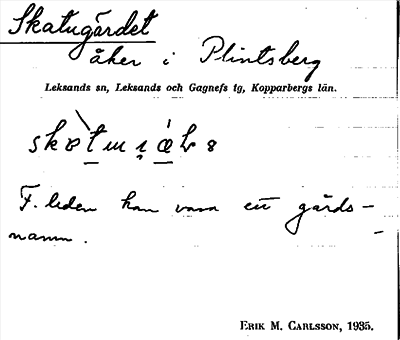 Skatugärdet
åker i Plintsberg
Leksands sn, Leksands och Gagnefs tg, Kopparbergs län.
F. leden kan vara ett gårds-
namn.
ERIK M. CARLSSON, 1935.